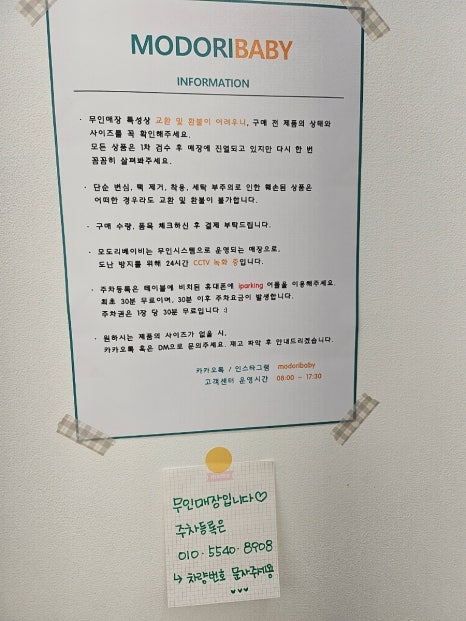 MODORIBABY
INFORMATION
· 무인매장 특성상 교환 및 환불이 어려우니, 구매 전 제품의 상태와
사이즈를 꼭 확인해주세요.
모든 상품은 1차 검수 후 매장에 진열되고 있지만 다시 한 번
꼼꼼히 살펴봐주세요.
· 단순 변심, 택 제거, 착용, 세탁 부주의로 인한 훼손된 상품은
어떠한 경우라도 교환 및 환불이 불가합니다.
· 구매 수량, 품목 체크하신 후 결제 부탁드립니다.
· 모도리베이비는 무인시스템으로 운영되는 매장으로,
도난 방지를 위해 24시간 CCTV 녹화 중입니다.
· 주차등록은 테이블에 비치된 휴대폰에 iparking 어플을 이용해주세요.
최초 30분 무료이며, 30분 이후 주차요금이 발생합니다.
주차권은 1장 당 30분 무료입니다 :)
· 원하시는 제품의 사이즈가 없을 시,
카카오톡 혹은 DM으로 문의주세요. 재고 파악 후 안내드리겠습니다.
카카오톡 / 인스타그램 modoribaby
고객센터 운영시간 08:00 - 17:30
무인매장입니다♡
주차등록은
010·5540·8908
↳ 차량번호 문자주세용
♥♥♥